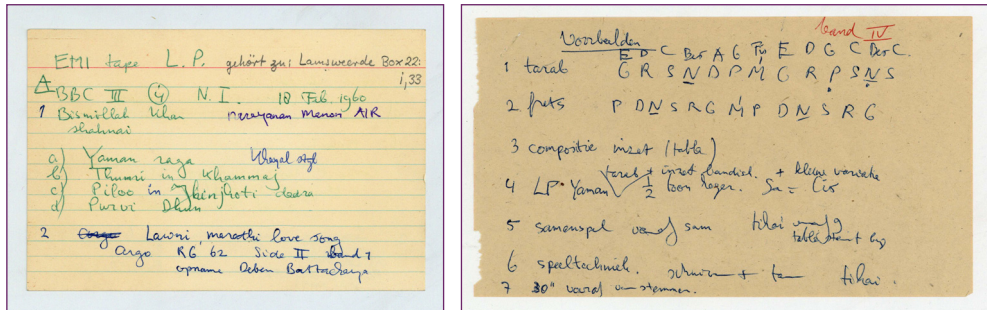 EMI tape L.P. gehört zu: Lamsweerde Box 22:
1,33
A BBC III 4 N.I. 18 Feb. 1960
1 Bismillah Khan Narayanan Menon AIR
shahnai
a) Yaman raga Khayal styl
b) Thumri in Khammaj
c) Piloo in Jhinjhoti dadra
d) Purvi Dhun
2 Lawni, marathi love song
Argo RG 62 Side II band 1
opname Deben Battacharya
band IV
Voorbeelden
E D C Bes A G Fis E D G C Des C.
1 tarab G R S N D P M G R P S N S
2 frets P D N S R G M P D N S R G
3 compositie inzet (tabla)
tarab + inzet + kleine variatie
4 LP Yaman 1/2 toon lager. Sa = Cis
5 samenspel vanaf sam tihai vanaf 9
6 speeltechniek. tihai
7 30" vanaf